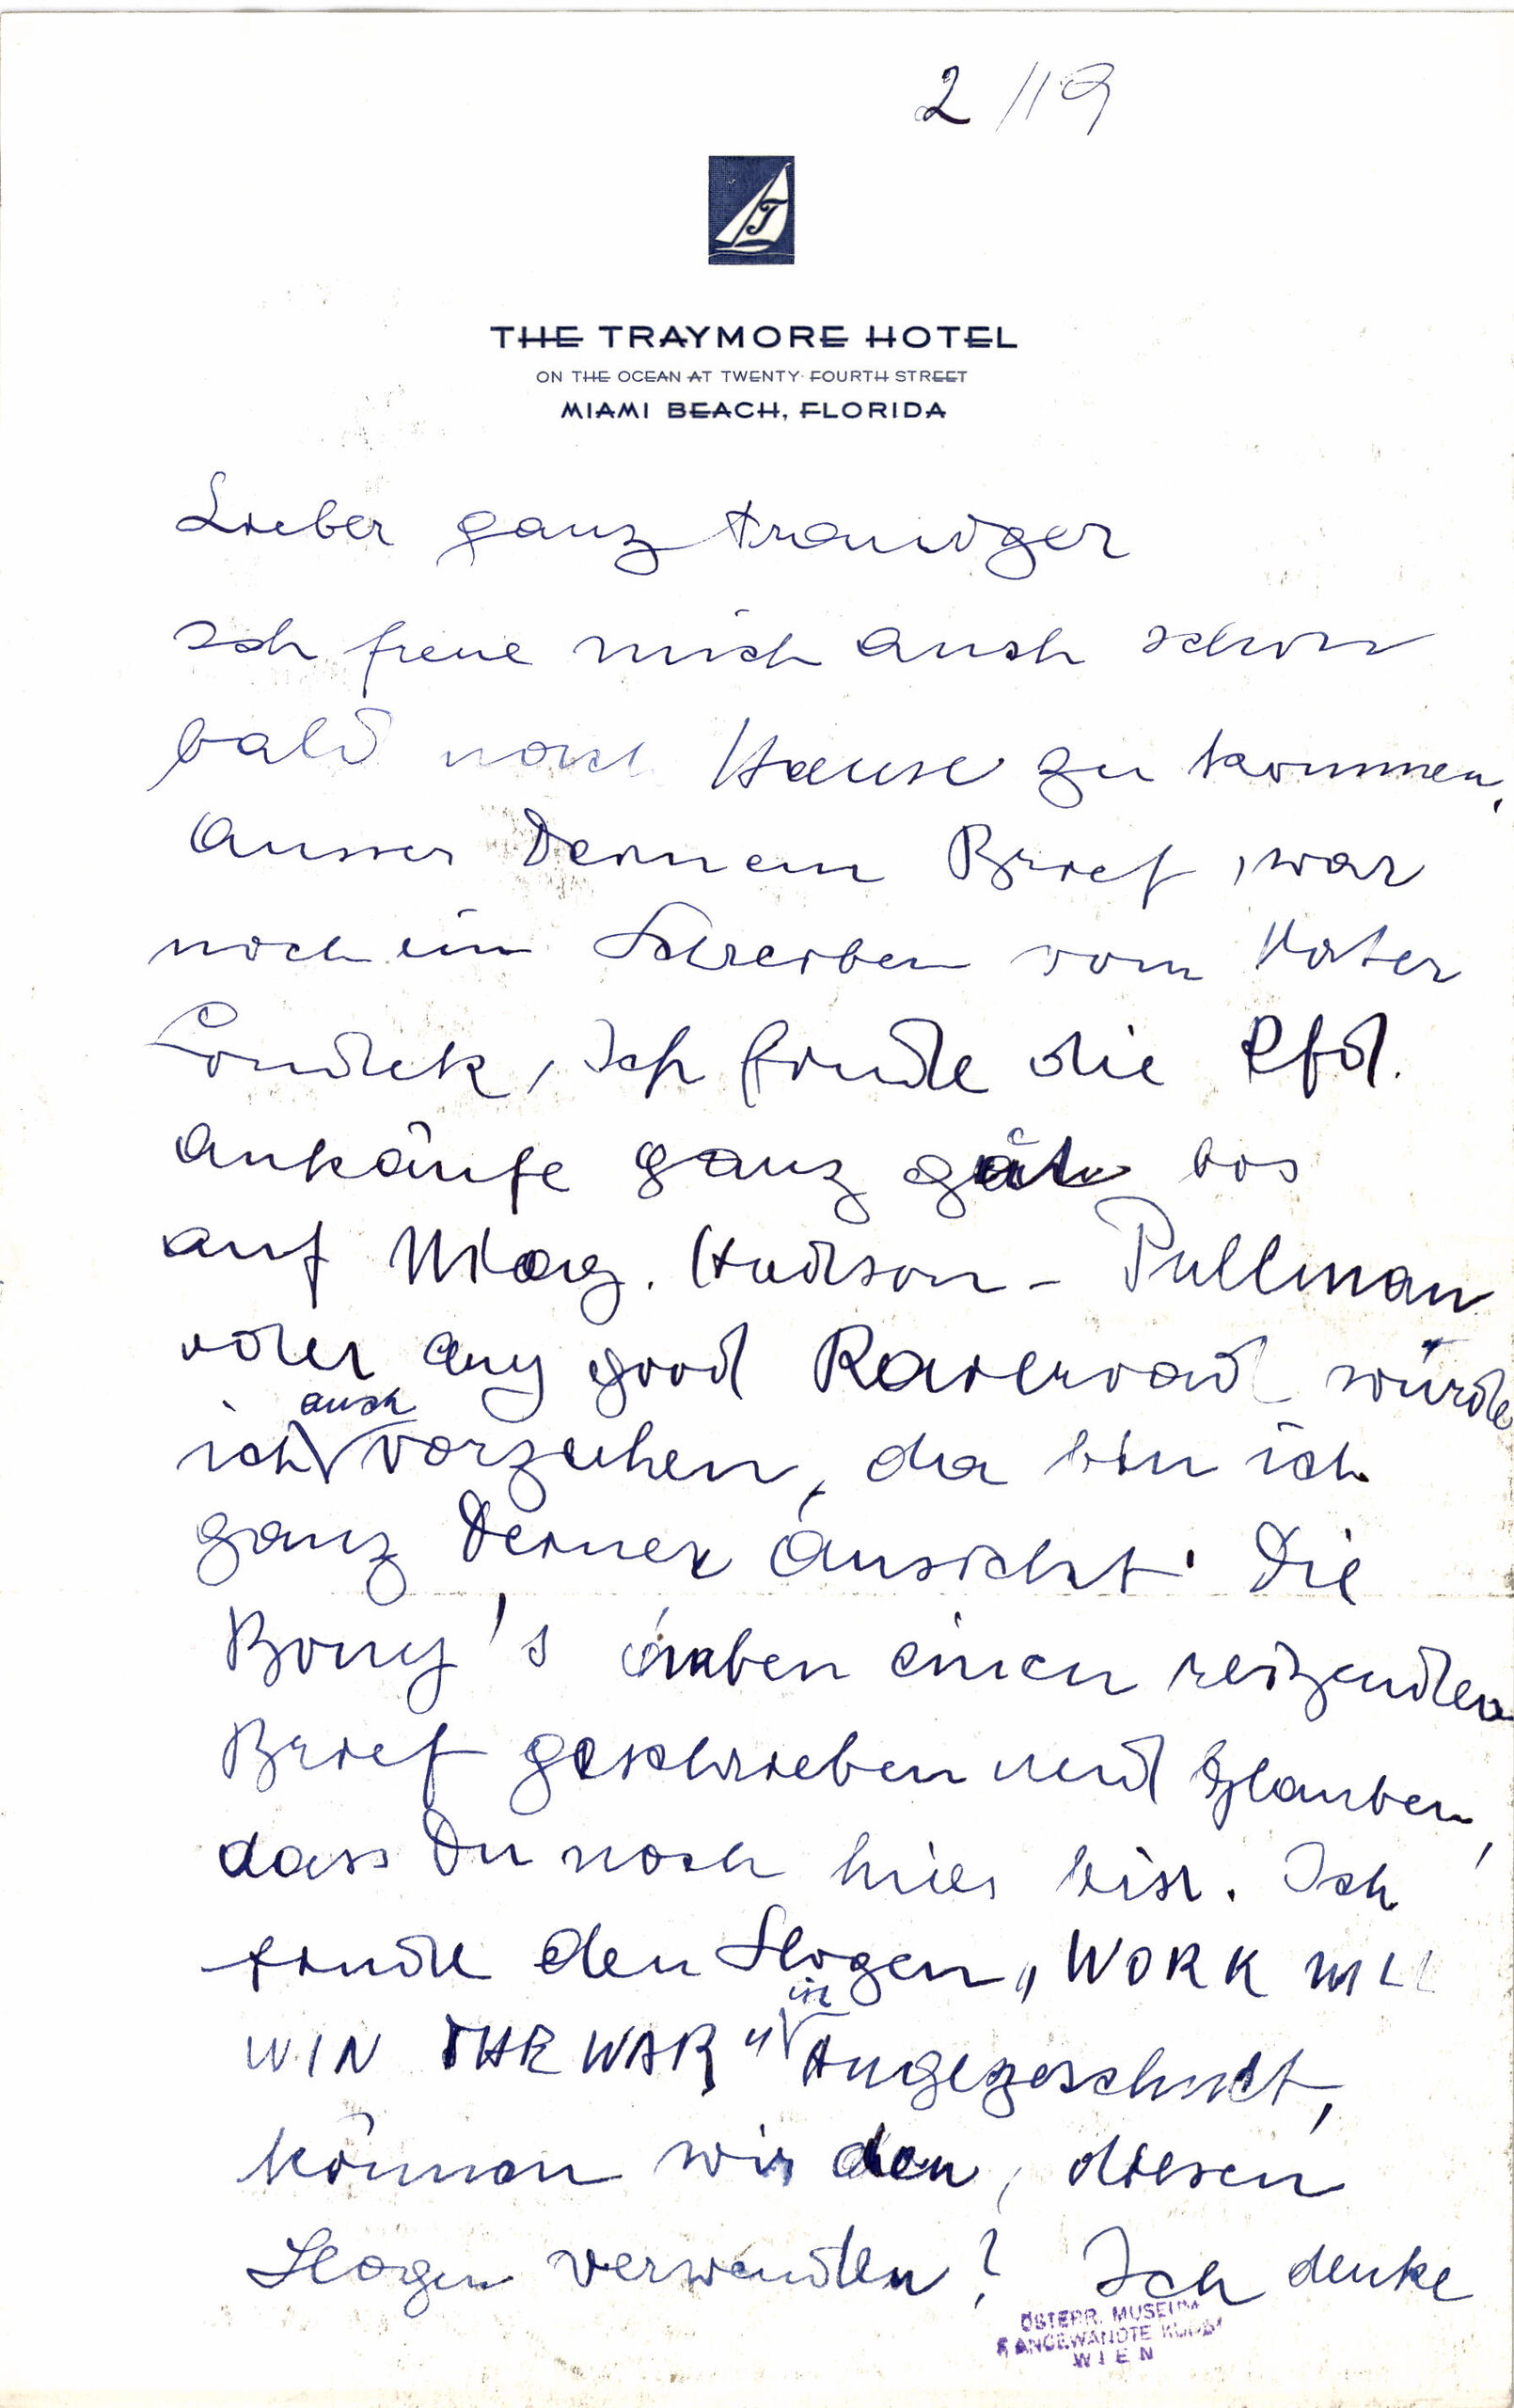 2/19
THE TRAYMORE HOTEL
ON THE OCEAN AT TWENTY-FOURTH STREET
MIAMI BEACH, FLORIDA
Lieber ganz trauriger
Ich freue mich auch schon
bald nach Hause zu kommen.
Ausser Deinem Brief, war
noch ein Schreiben vom Vater
Ich finde die Pfd.
Ankäufe ganz gut bis
auf Niag. Hudson - Pullman
oder any good Railroad würde
ich auch vorziehen, da bin ich
ganz Deiner Ansicht. Die
haben einen reizenden
Brief geschrieben und glauben,
dass Du noch hier bist. Ich
finde den Slogen „WORK WILL
WIN THE WAR" ist
können wir den, diesen
Slogen verwenden? Ich denke
ÖSTERR. MUSEUM
F. ANGEWANDTE KUNST
WIEN